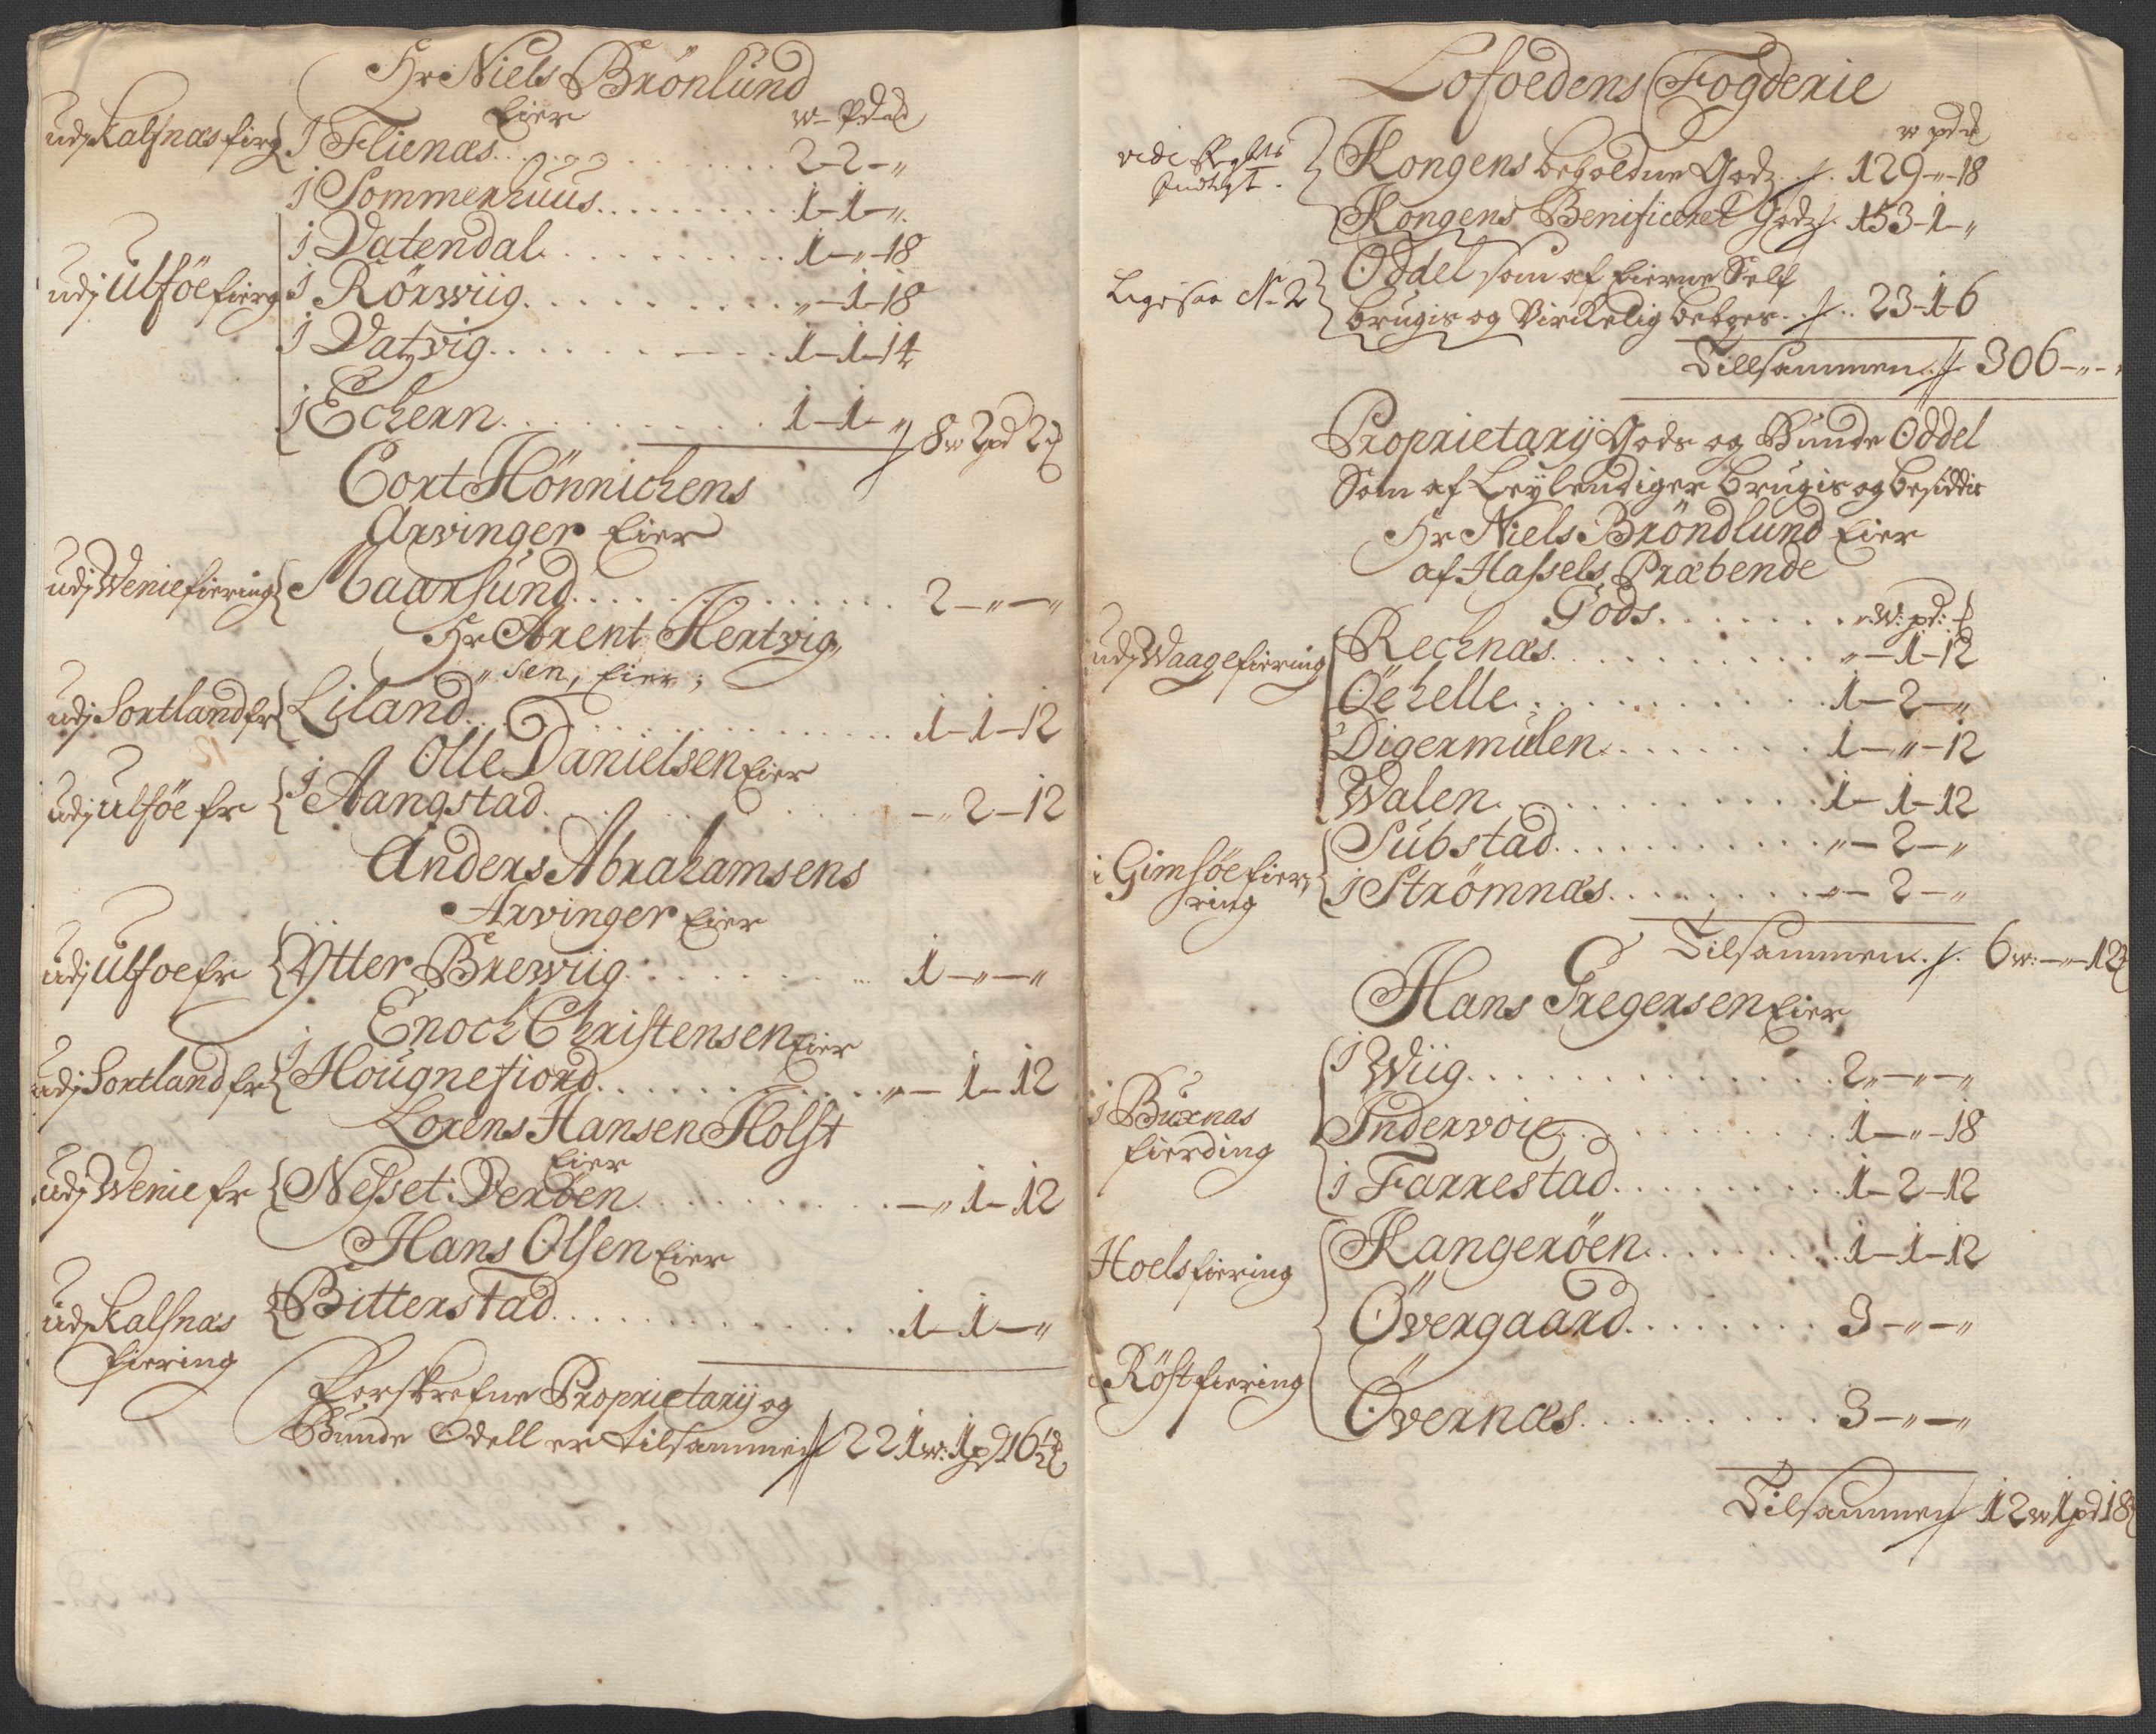 Hr Niels Brönlund
Eier w- Pd
udj Kalsnæs fierg j Flienæs 2-2-"
j Sommerhuus 1-1-"
j Vatendal 1-"-18
udj Ulföe fierg j Rörwiig "-1-18
j Vatzvig 1-1-14
j Echern 1-1-"
8w 2pd 2
Cort Hönnichens
Arvinger Eier
udj Wenie fiering Maarsund 2-"-"
Hr Arent Hertvig"
"sen, Eier;
udj Sortland fr Liland 1-1-12
Olle Danielsen Eier
udj Ulföe fr j Aangstad -"2-12
Anders Abrahamsens
Arvinger Eier
udj Ulföe fr Ytter Brewiig 1-"-"
Enoch Christensen Eier
udj Sortland fr j Hougnefiord "-1-12
Lorens Hansen Holst
Eier
udj Wenie fr Nesset Veröen -"1-12
Hans Olsen Eier
udj Kalsnæs Bitterstad 1-1-"
fiering
Forskrefne Proprietarij og
Bunde Odell er tilsammen 221w: 1pd 16½
Lofoedens Fogderie
w pd
vide
Kongens beholdne Godz 129-"-18
Kongens Benificeret Godz 153-1-"
Ligesaa No 2 Oddel som af Eierne Self
brugis og Virckelig 23-1-6
Tillsammen 306-"-"
Proprietarij Gods og Bunde Oddel
Som af Leylendiger brugis og besiddis
Hr Niels Bröndlund Eier
af Hassels Præbende
Gods W: pd:
udj Waage fiering Rechnæs "-1-12
Öehelle 1-2-"
Digermulen 1-"-12
Walen 1-1-12
i Gimsöe fier" Substad "-2-"
ring j Strömnæs "-2-"
Tilsammen 6w:-"-12
Hans Gregersen Eier
j Wiig 2"-"-"
j Buxnas Indervoie 1-"-18
fierding j Farrestad 1-2-12
Hoels fiering Kangeröen 1-1-12
Övergaard 3-"-"
Röst fiering Övernæs 3-"-"
Tilsammen 12w 1pd 18